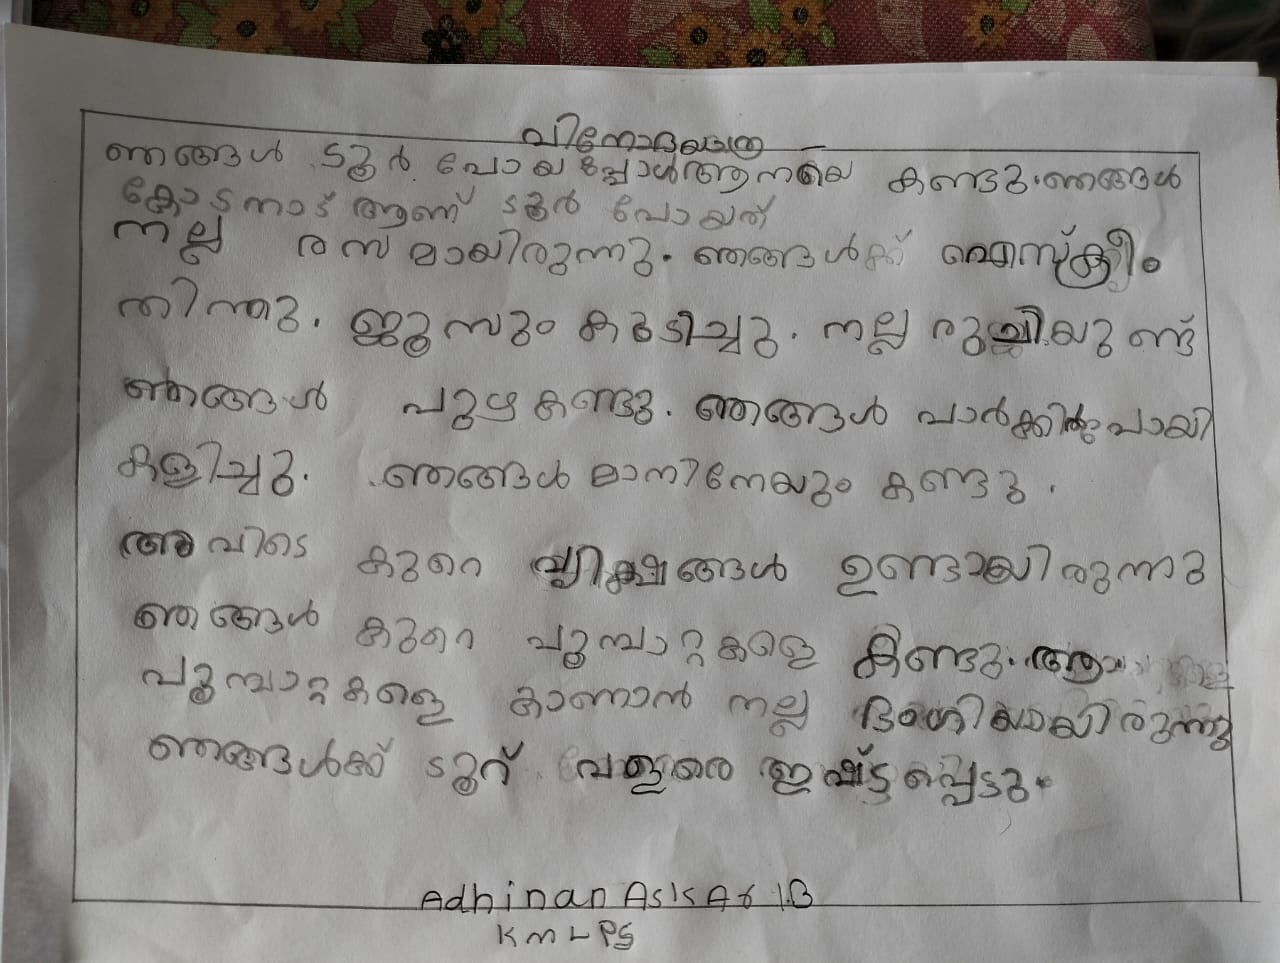 വിനോദയാത്ര
ഞങ്ങൾ ടൂർ പോയപ്പോൾ ആനയെ കണ്ടു. ഞങ്ങൾ
കോടനാട് ആണ് ടൂർ പോയത്
നല്ല രസമായിരുന്നു. ഞങ്ങൾക്ക് ഐസ്ക്രീം
തിന്നു. ജൂസും കുടിച്ചു. നല്ല രുചിയുണ്ട്
ഞങ്ങൾ പുഴ കണ്ടു. ഞങ്ങൾ പാർക്കിൽപോയി
കളിച്ചു. ഞങ്ങൾ മാനിനേയും കണ്ടു.
അവിടെ കുറെ വൃക്ഷങ്ങൾ ഉണ്ടായിരുന്നു
ഞങ്ങൾ കുറെ പൂമ്പാറ്റകളെ കണ്ടു. ആ
പൂമ്പാറ്റകളെ കാണാൻ നല്ല ഭംഗിയായിരുന്നു
ഞങ്ങൾക്ക് ടൂറ് വളരെ ഇഷ്ട്ടപ്പെട്ടു.
Adhinan AskAr 1.B
KMLPS